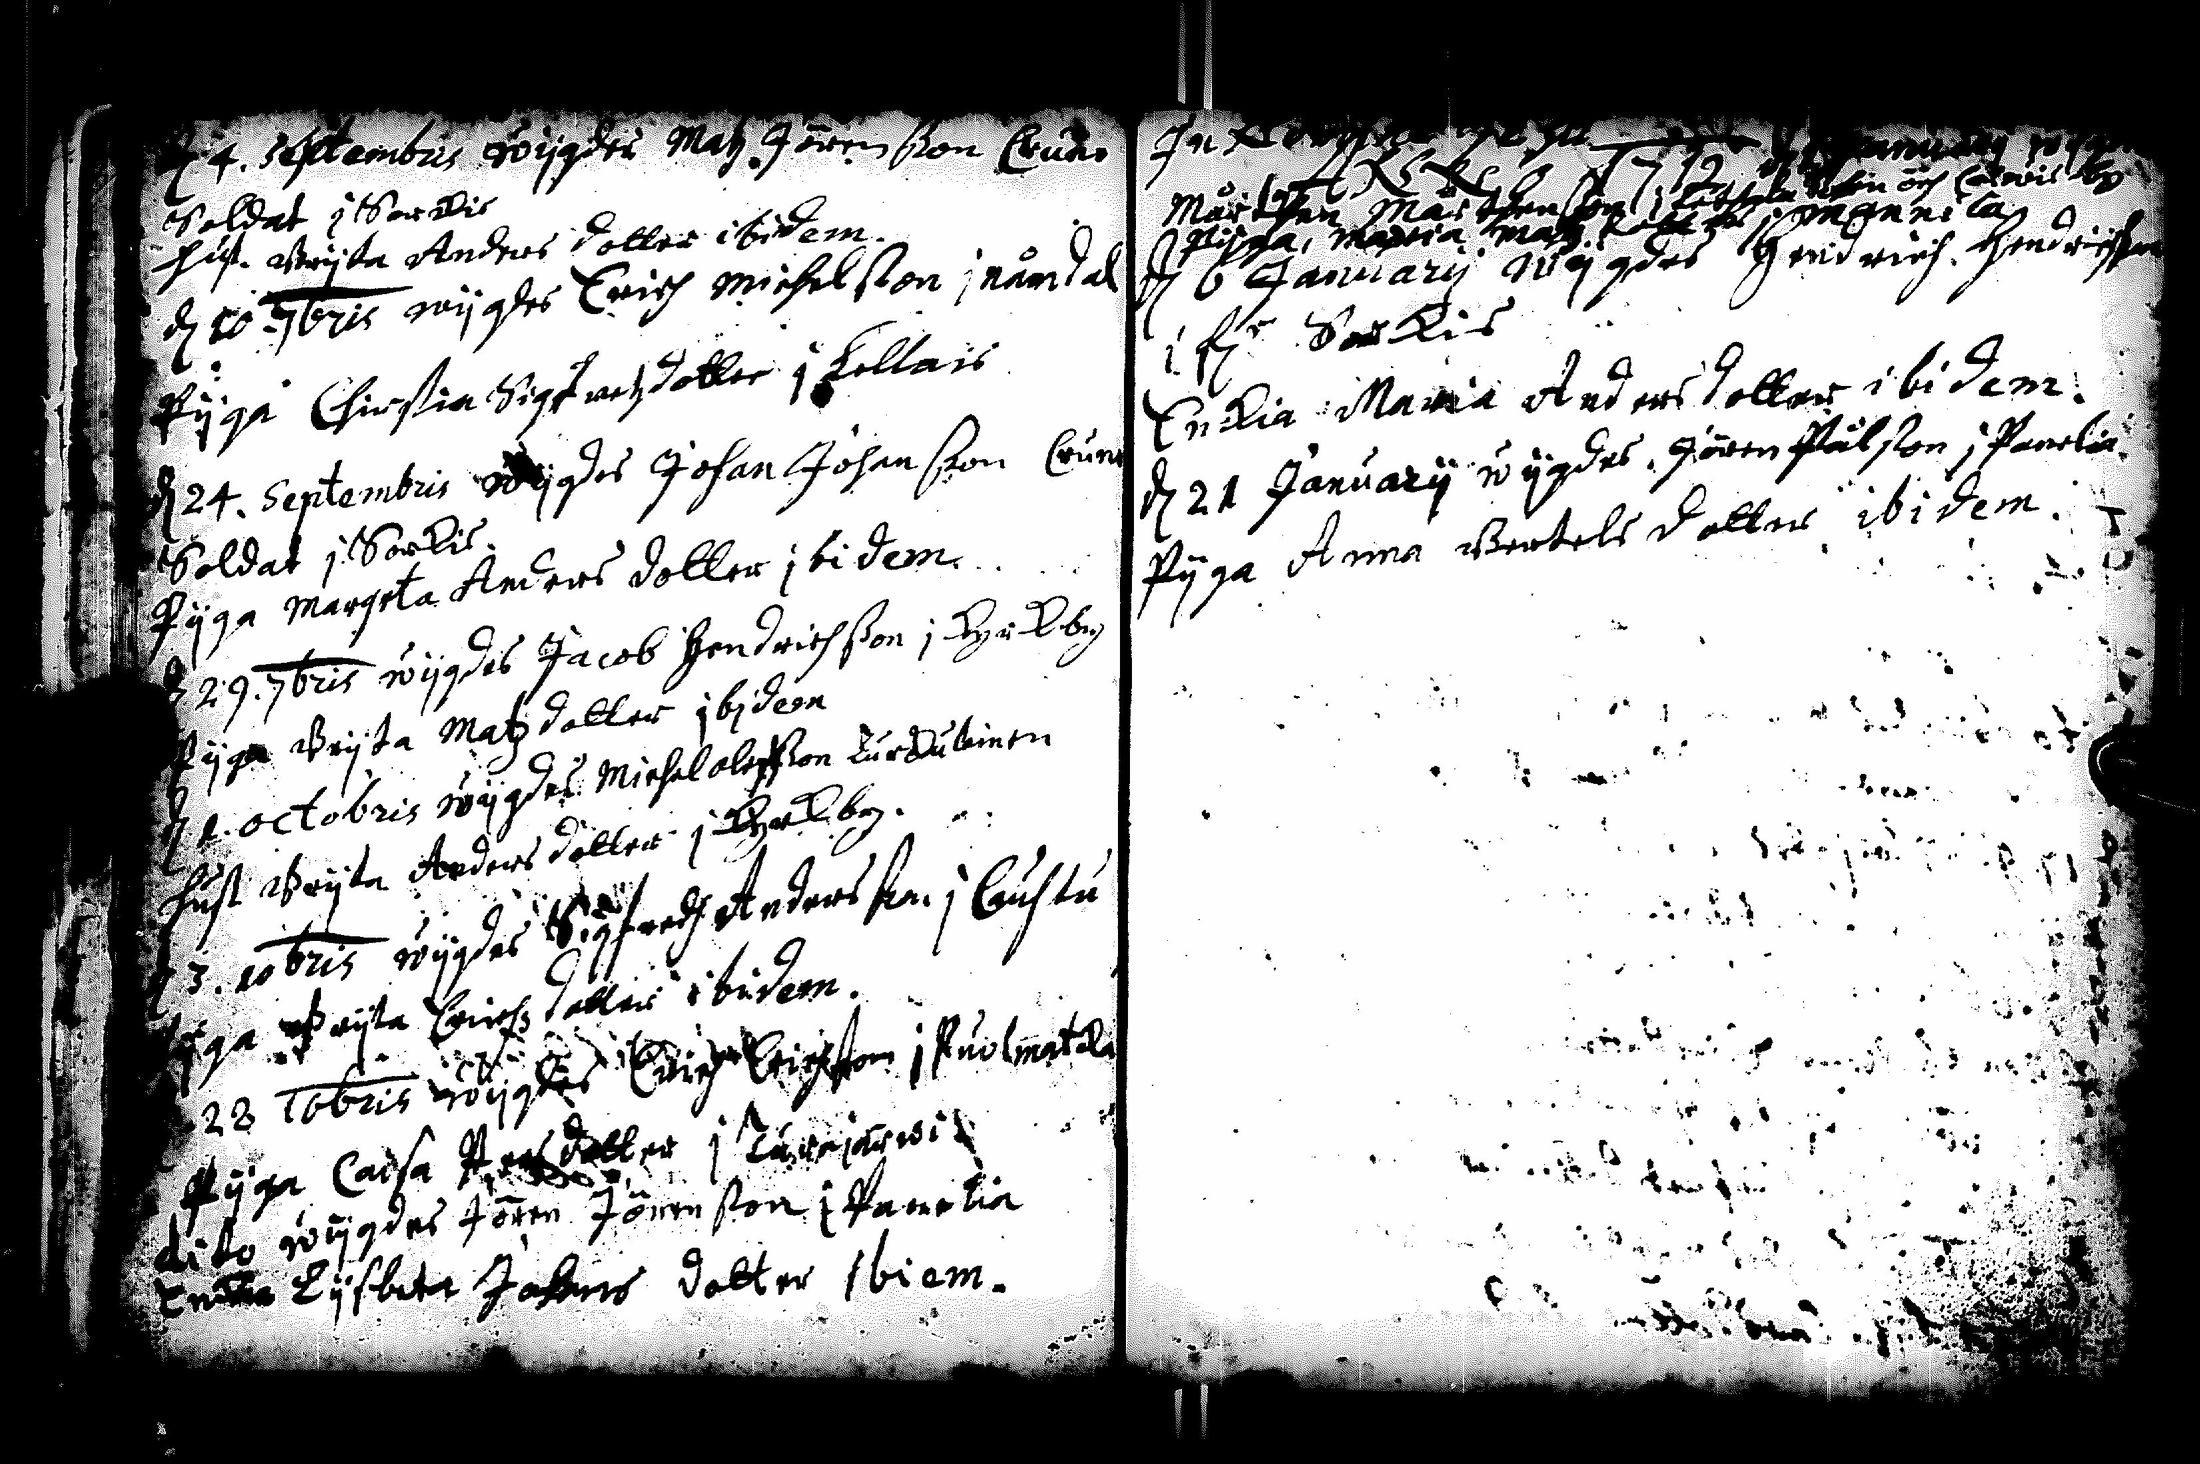 d 4. Septembris wijgdes Matz Jörensson Cruno
Soldat j Sorkis
hust. Brijta Anders dotter ibidem.
d 10 7bris wijgdes Erich Michelsson j nåmdal
Pijga Chirstin Sigfredz dotter j Kellais
d 24. Septembris wijgdes Johan Johansson Cruno
Soldat j Sorkis.
Pijga Margeta Anders dotter jbidem.
d 29. 7bris wijgdes Jacob Hendrichsson j Kyrkby
Pijga Brijta Matz dotter jbidem
d 1. octobris wijgdes Michel olefsson
hust Brijta Anders dotter j Kyrkby.
d 3. 10bris wijgdes Sigfredh Andersson j Cuhtu
Pijga Brijta Erichz dotter ibidem.
28 10bris wijgdes Erich Erichsson j
Pijga Caisa dotter j
dito wijgdes Jören Jörensson j Panelia
Enkia Lijsbeta Johans dotter Ibiem.
1712 Januarij
Mårthen Mårthensson j
Pijga, Maria Matz dotter j Mannila
d 6 Januarij wijgdes Hendrich Hendrichsson
i fr Sorkis
Enkia Maria Anders dotter ibidem.
d 21 Januarij wijgdes Jören Pålsson j Panelia.
Pijga Anna Bertels dotter ibidem.